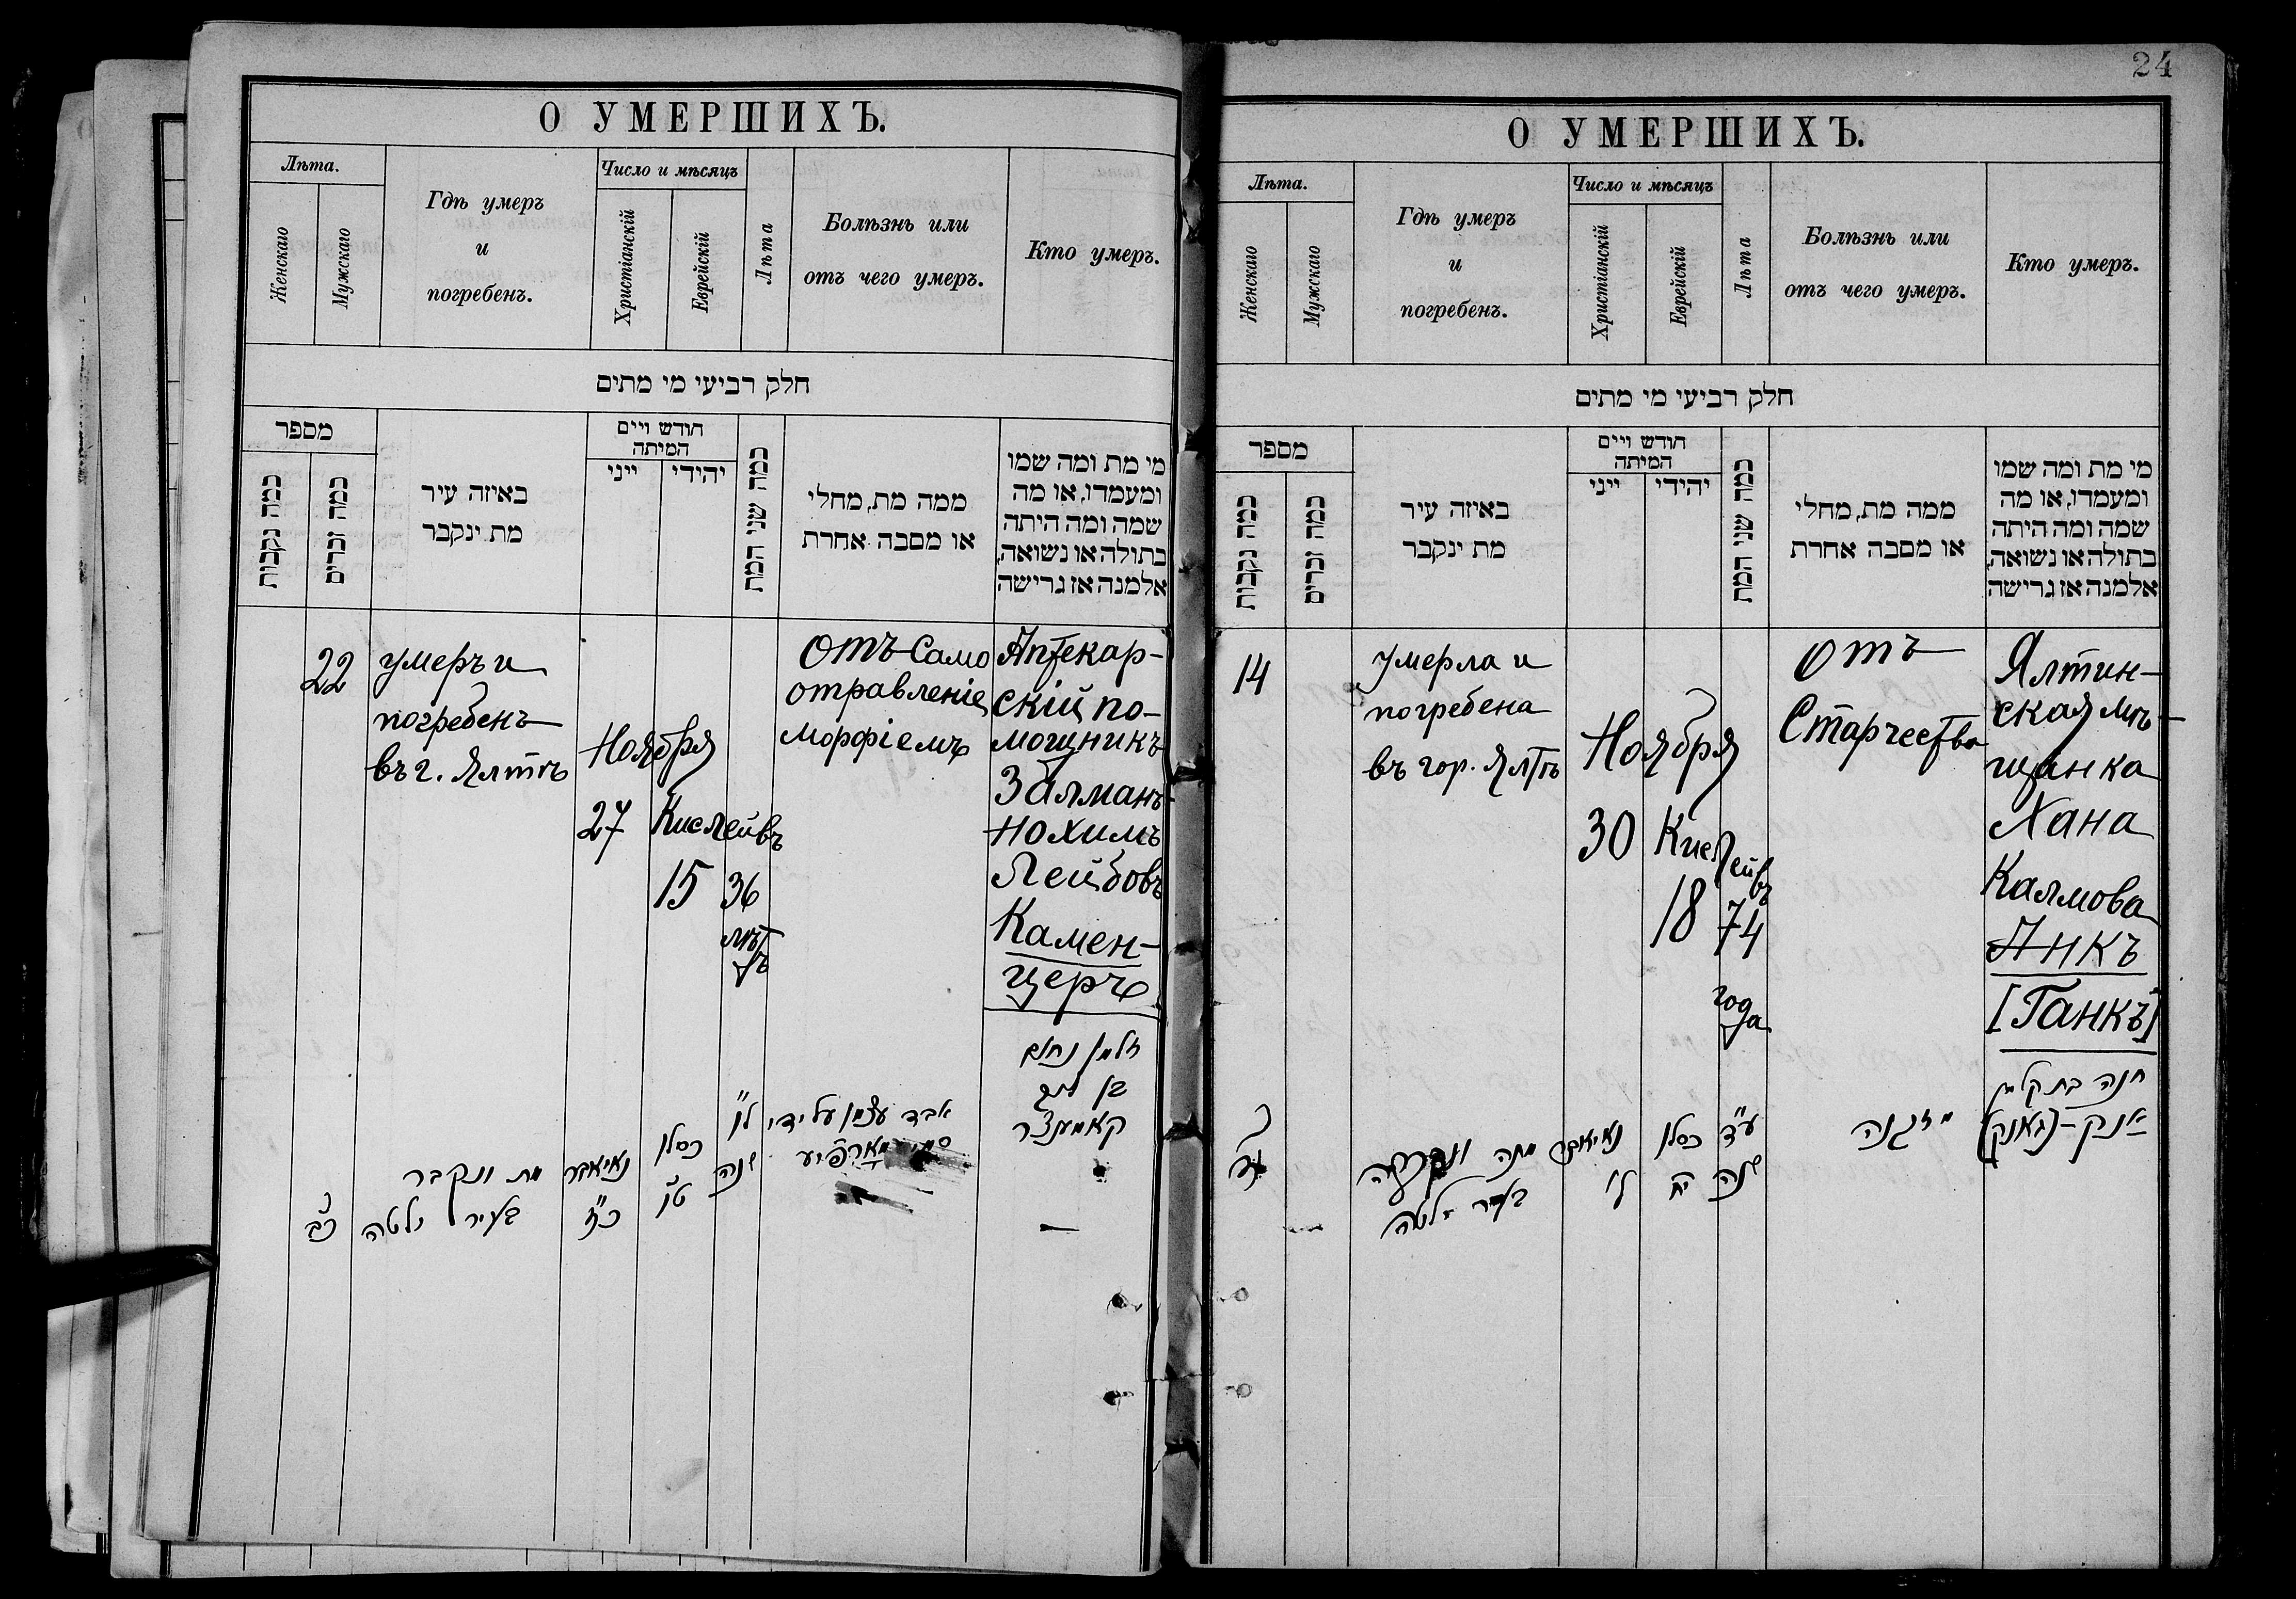 О УМЕРШИХЪ.
Лѣта.
Женскаго
Мужскаго
Гдѣ умеръ
и
погребенъ.
Число и мѣсяцъ
Христіанскій
Еврейскій
Лѣта
Болѣзнь или
отъ чего умеръ.
Кто умеръ.
חלק רביעי מי מתים
מספר
כמה נקבות
כמה זכרים
באיזה עיר
מת ינקבר
חודש ויים
המיתה
ייני
יהודי
כמה שני המת
ממה מת, מחלי
או מסבה אחרת
מי מת ומה שמו
ומעמדו, או מה
שמה ומה היתה
בתולה או נשואה,
אלמנה אז גרישה
22
умеръ и
погребенъ
въ г. Ялтѣ
Ноября
27
Кислейвъ
15
36
лѣтъ
отъ само
отравленіе
морфіемъ
Аптекар-
скій по-
мощникъ
Залманъ-
Нохимъ
Лейбовъ
Камен-
церъ
זלמן נחום
בן ליב
קאמענצר
אבד עצמו על ידי
מארפיע
לו
שנה
כסלו
טו
נאיאבר
כ״ז
מת ונקבר
בעיר ילטה
כב
24
О УМЕРШИХЪ.
Лѣта.
Женскаго
Мужскаго
Гдѣ умеръ
и
погребенъ.
Число и мѣсяцъ
Христіанскій
Еврейскій
Лѣта
Болѣзнь или
отъ чего умеръ.
Кто умеръ.
חלק רביעי מי מתים
מספר
כמה נקבות
כמה זכרים
באיזה עיר
מת ינקבר
חודש ויים
המיתה
ייני
יהידי
כמה שני המת
ממה מת, מחלי
או מסבה אחרת
מי מת ומה שמו
ומעמדו, או מה
שמה ומה היתה
בתולה או נשואה,
אלמנה אז גרישה
14
умерла и
погребена
въ гор. Ялтѣ
Ноября
30
Кислейвъ
18
74
года
отъ
Старчества
Ялтин-
ская мѣ-
щанка
Хана
Калмова
Анкъ
[Ганкъ]
חנה בת קלמן
אנק-(גאנק)
מזגנה
ע״ד
שנה
כסלו
יח
נאיאבר
ל׳
מתה ונקברה
בעיר ילטה